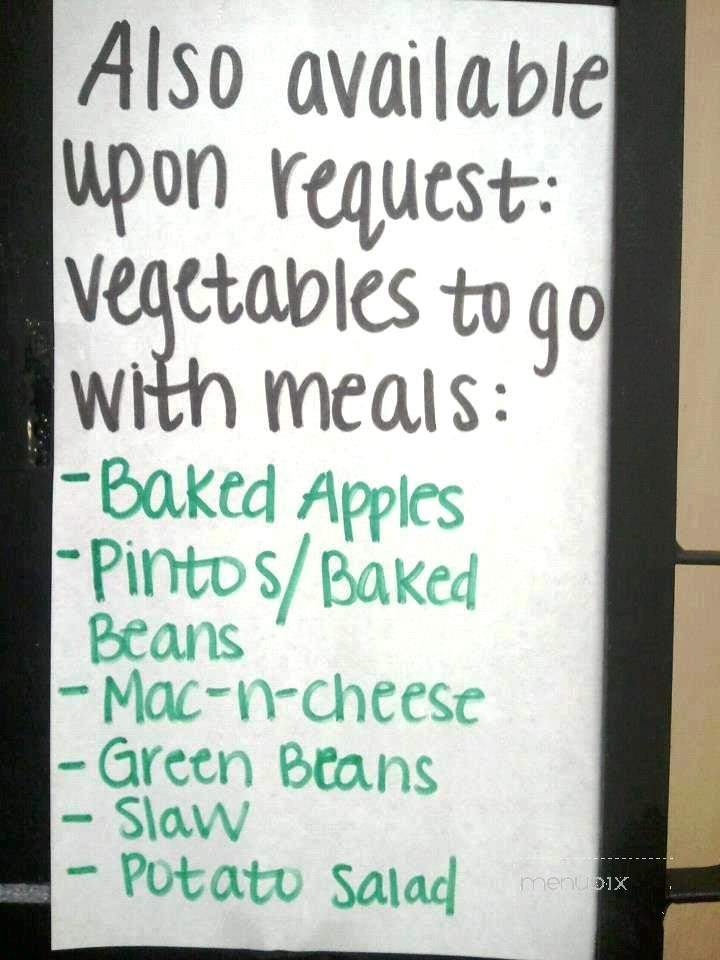 Also available
upon request:
vegetables to go
with meals:
- Baked Apples
- Pintos/Baked
Beans
- Mac-n-cheese
- Green Beans
- Slaw
- Potato Salad
menupix